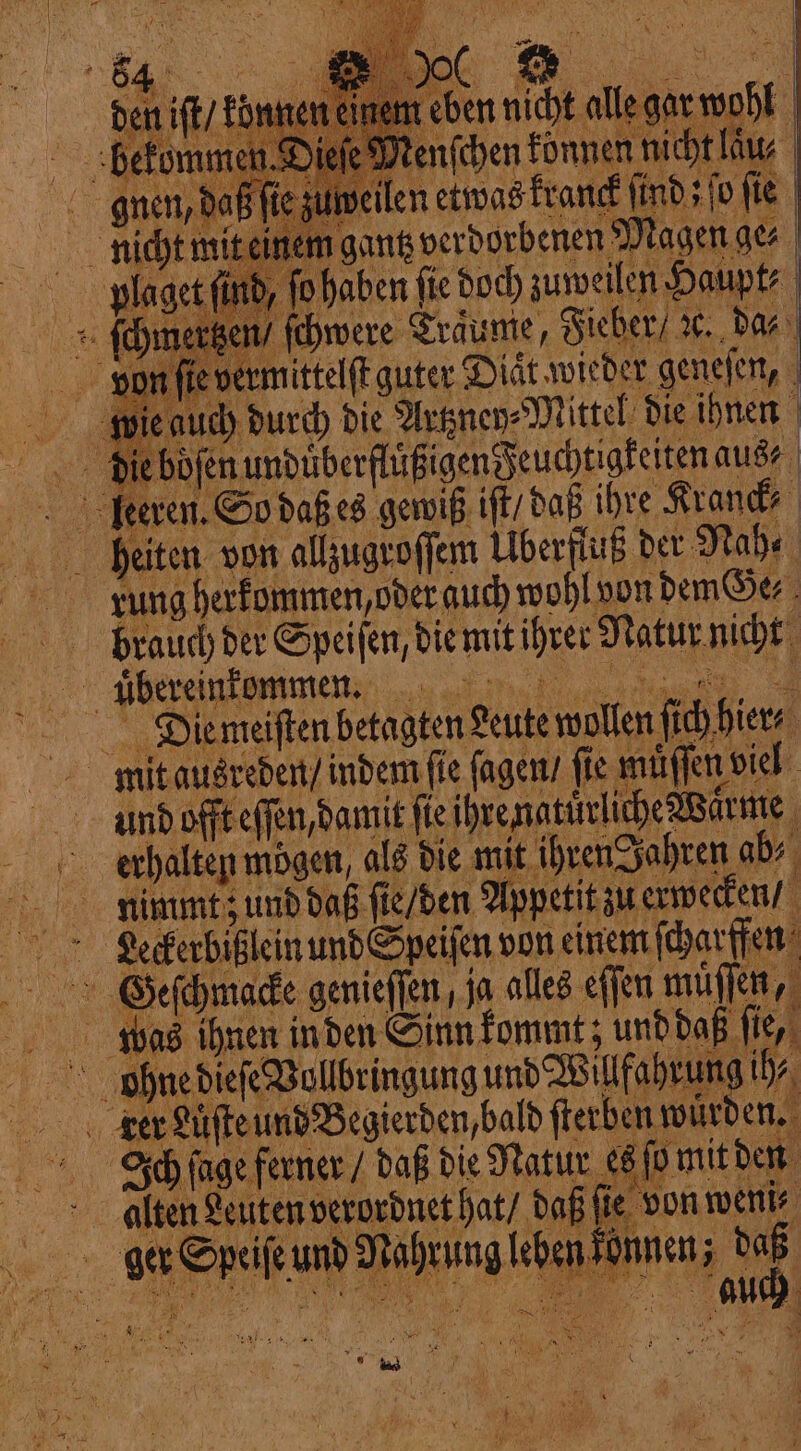 84 ❀ )o( ❀
den iſt/ koͤnnen einem eben nicht alle gar wohl
bekommen. Dieſe Menſchen koͤnnen nicht laͤu⸗
gnen, daß ſie zuweilen etwas kranck ſind; ſo ſie
nicht mit einem gantz verdorbenen Magen ge⸗
plaget ſind, ſo haben ſie doch zuweilen Haupt⸗
ſchmertzen/ ſchwere Traͤume, Fieber/ ꝛc. da⸗
von ſie vermittelſt guter Diaͤt wieder geneſen,
wie auch durch die Artzney⸗Mittel die ihnen
die boͤſen und uͤberfluͤßigen Feuchtigkeiten aus⸗
leeren. So daß es gewiß iſt/ daß ihre Kranck⸗
heiten von allzugroſſem Uberfluß der Nah⸗
rung herkommen, oder auch wohl von dem Ge⸗
brauch der Speiſen, die mit ihrer Natur nicht
uͤbereinkommen.
Die meiſten betagten Leute wollen ſich hier⸗
mit ausreden/ indem ſie ſagen/ ſie muͤſſen viel
und offt eſſen, damit ſie ihre natuͤrliche Waͤrme
erhalten moͤgen, als die mit ihren Jahren ab⸗
nimmt; und daß ſie/ den Appetit zu erwecken/
Leckerbißlein und Speiſen von einem ſcharffen
Geſchmacke genieſſen, ja alles eſſen muͤſſen,
was ihnen in den Sinn kommt; und daß ſie,
ohne dieſe Vollbringung und Willfahrung ih⸗
rer Luͤſte und Begierden, bald ſterben wuͤrden.
Ich ſage ferner/ daß die Natur es ſo mit den
alten Leuten verordnet hat/ daß ſie von weni⸗
ger Speiſe und Nahrung leben koͤnnen; daß
auch